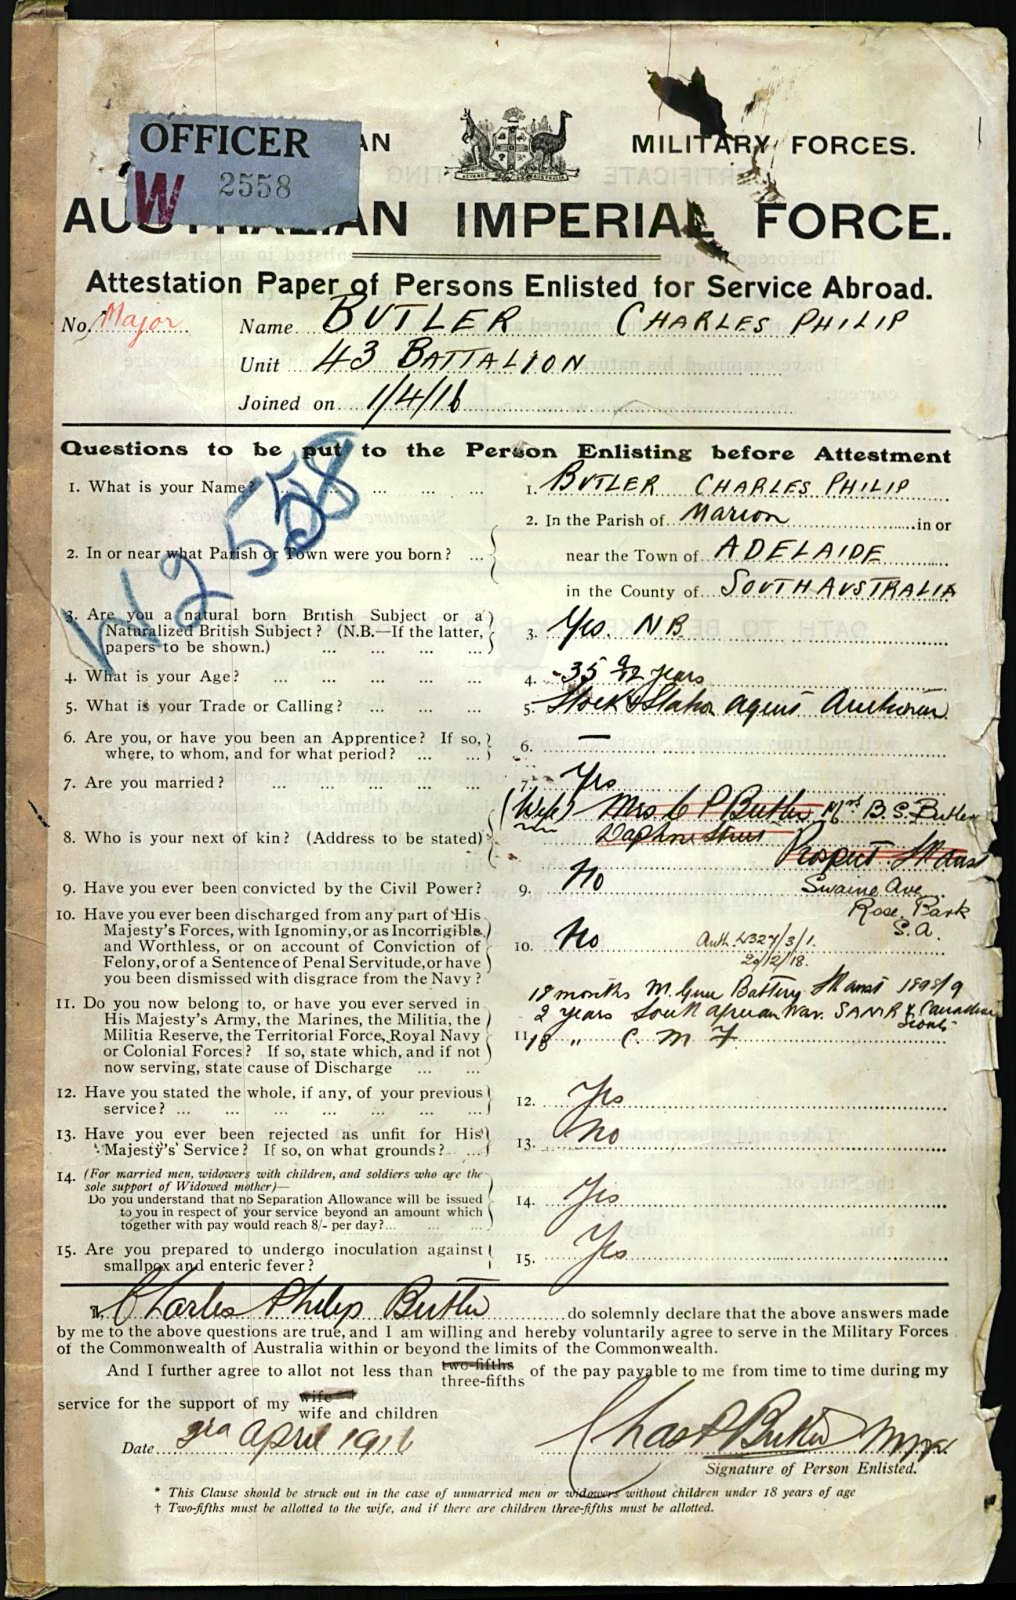 OFFICER
W 2558
AN MILITARY FORCES.
AUSTRALIAN IMPERIAL FORCE.
Attestation Paper of Persons Enlisted for Service Abroad.
No. Major Name BUTLER CHARLES PHILIP
Unit 43 BATTALION
Joined on 1/4/16
Questions to be put to the Person Enlisting before Attestment
W2558
1. What is your Name? ... ... ... 1. BUTLER CHARLES PHILIP
2. In or near what Parish or Town were you born? ... 2. In the Parish of Marion in or
near the Town of ADELAIDE
in the County of SOUTH AUSTRALIA
3. Are you a natural born British Subject or a
Naturalized British Subject? (N.B.—If the latter,
papers to be shown.) ... ... ... ... 3. Yes. NB
4. What is your Age? ... ... ... ... 4. 35 9/12 years
5. What is your Trade or Calling? ... ... ... 5. Stock & Station Agent
6. Are you, or have you been an Apprentice? If so,
where, to whom, and for what period? ... ... 6. —
7. Are you married? ... ... ... ... 7. Yes
8. Who is your next of kin? (Address to be stated) (Wife) Mrs C P Butler Mrs B.S. Butler
Daphne Street
Prospect
Swaine Ave
Rose Park
S.A.
9. Have you ever been convicted by the Civil Power? 9. No
10. Have you ever been discharged from any part of His
Majesty's Forces, with Ignominy, or as Incorrigible
and Worthless, or on account of Conviction of
Felony, or of a Sentence of Penal Servitude, or have
you been dismissed with disgrace from the Navy? 10. No
11. Do you now belong to, or have you ever served in
His Majesty's Army, the Marines, the Militia, the
Militia Reserve, the Territorial Force, Royal Navy
or Colonial Forces? If so, state which, and if not
now serving, state cause of Discharge ... ...
18 months M. Gun Battery 1898/9
2 years South African War. SAMR & Canadian
11. 18 " C. M F
12. Have you stated the whole, if any, of your previous
service? ... ... ... ... ... ... 12. Yes
13. Have you ever been rejected as unfit for His
Majesty's Service? If so, on what grounds? ... 13. No
14. (For married men, widowers with children, and soldiers who are the
sole support of Widowed mother)—
Do you understand that no Separation Allowance will be issued
to you in respect of your service beyond an amount which
together with pay would reach 8/- per day?... ... ... 14. Yes
15. Are you prepared to undergo inoculation against
smallpox and enteric fever? 15. Yes
I, Charles Philip Butler do solemnly declare that the above answers made
by me to the above questions are true, and I am willing and hereby voluntarily agree to serve in the Military Forces
of the Commonwealth of Australia within or beyond the limits of the Commonwealth.
And I further agree to allot not less than two-fifths three-fifths of the pay payable to me from time to time during my
service for the support of my wife wife and children
Date April 1916 Chas P Butler Major
Signature of Person Enlisted.
* This Clause should be struck out in the case of unmarried men or widowers without children under 18 years of age
† Two-fifths must be allotted to the wife, and if there are children three-fifths must be allotted.